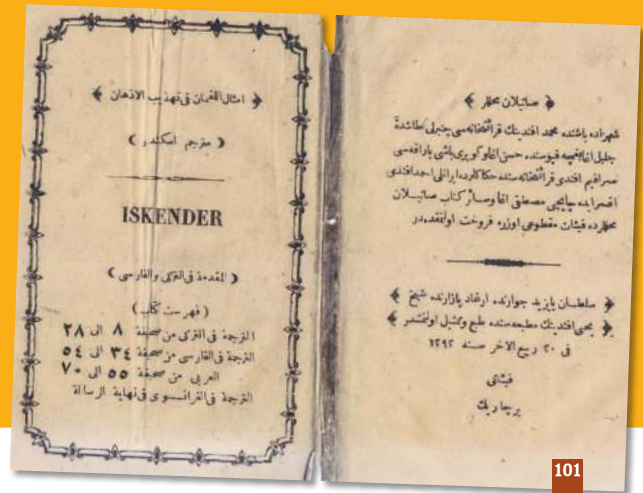 ﴿ امثال اللقمان فى تهذيب الاذهان ﴾
( مترجم اسكندر )
ISKENDER
( المقدمة فى التركى والفارسى )
( فهرست كتاب )
الترجمة فى التركى من صحيفة ٨ الى ٢٨
الترجمة فى الفارسى من صحيفة ٣٤ الى ٥٤
العربى من صحيفة ٥٥ الى ٧٠
الترجمة فى الفرانسوى فى نهاية الرسالة
﴿ صاتيلان محللر ﴾
شهزاده باشنده محمد افندينك قرائتخانه سى چنبرلى طاشده
خليل اغا قپوسنده حسن اغا وكوپرى باشى
سرافيم افندى قرائتخانه سنده حكاكلرده ايرانلى احمد افندى
اقسرايده چايجى مصطفى اغا وسائر كتاب صاتيلان
محللرده فيئات مقطوعى اوزره فروخت اولنمقده در
﴿ سلطان بايزيد جوارنده ارغاد پازارنده شيخ ﴾
﴿ يحيى افندينك مطبعه سنده طبع وتمثيل اولنمشدر ﴾
فى ٢٠ ربيع الاخر سنه ١٢٩٢
فيئاتى
بر چاريك
101